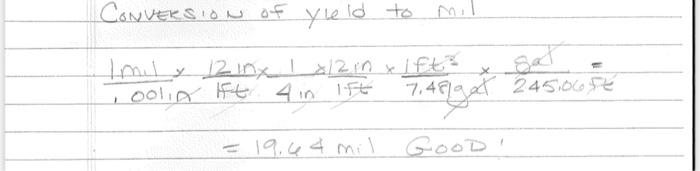 CONVERSION of yield to mil
1mil/.001in x 12in/1ft x 1/4in x 12in/1ft x 1ft³/7.48gal x gal/245.06ft =
= 19.64 mil GOOD!